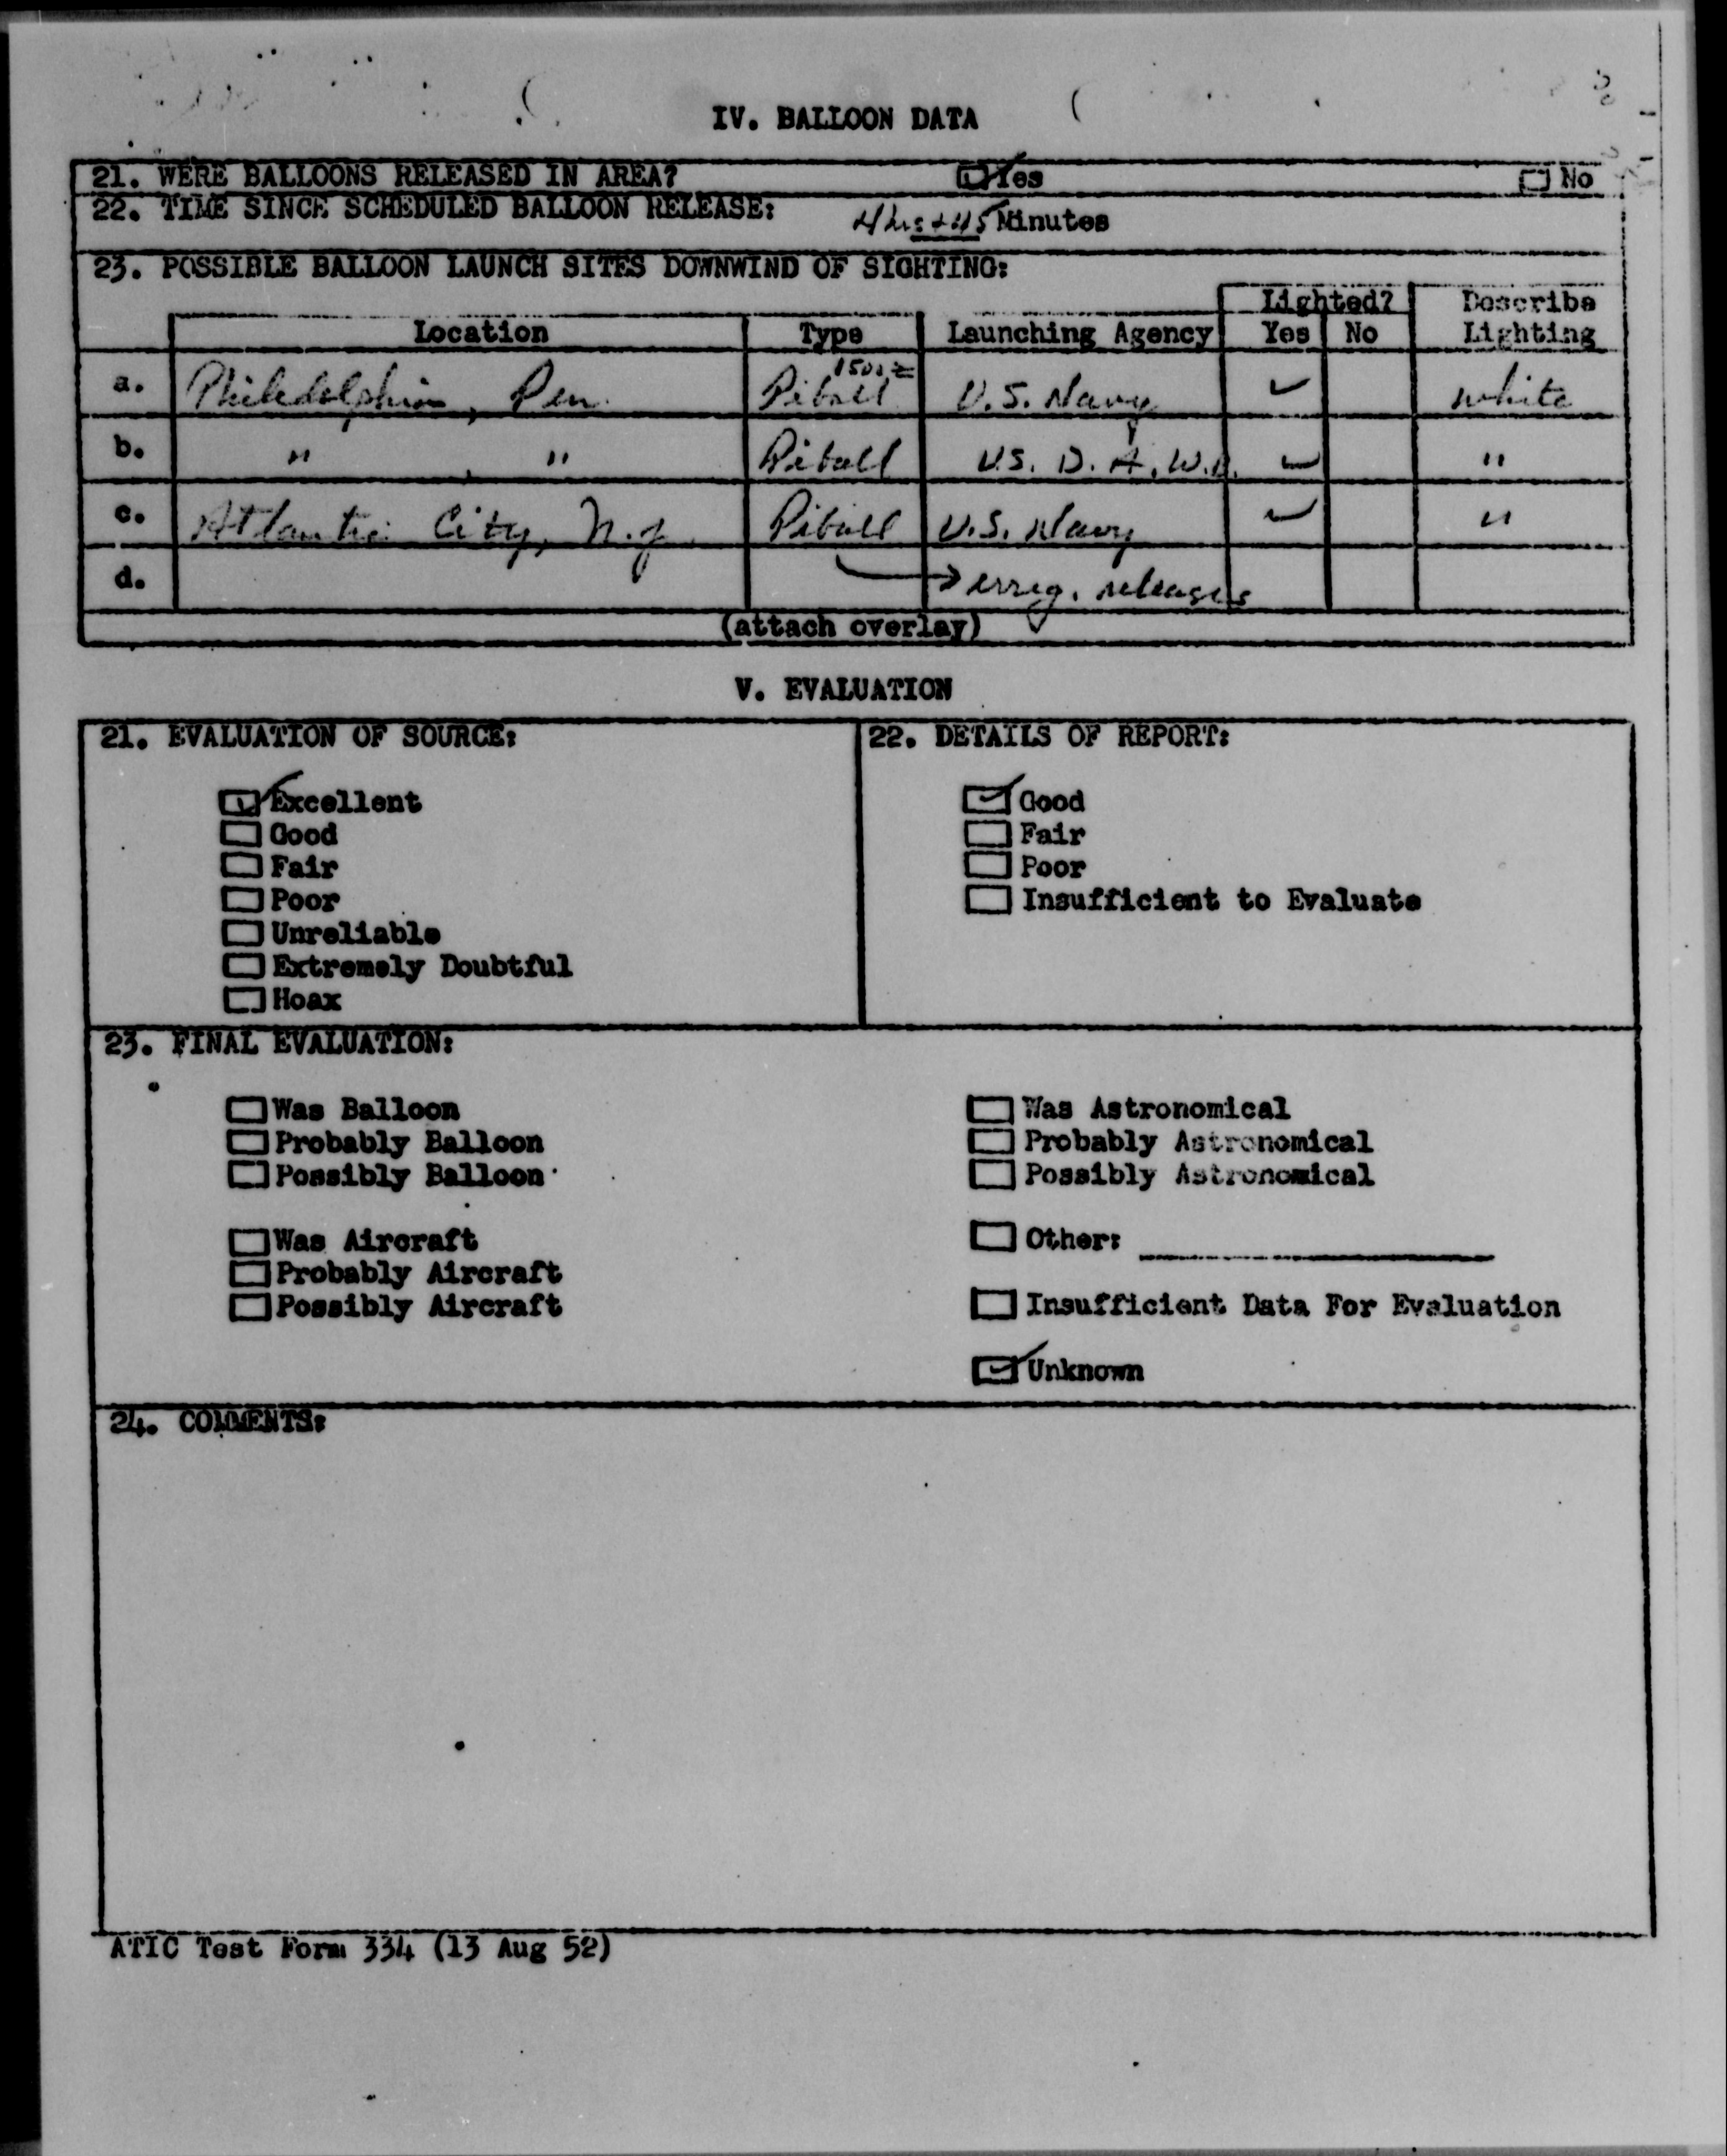 IV. BALLOON DATA
21. WERE BALLOONS RELEASED IN AREA? Yes No
22. TIME SINCE SCHEDULED BALLOON RELEASE: 4 hrs + 45 Minutes
23. POSSIBLE BALLOON LAUNCH SITES DOWNWIND OF SIGHTING:
Lighted? Describe
Location Type Launching Agency Yes No Lighting
a. Philedelphia, Pen. Piball U.S. Navy ✓ white
b. " , " Piball U.S. D. A. ✓ "
c. Atlantic City, N.J. Piball U.S. Navy ✓ "
d. → irreg. releases
(attach overlay)
V. EVALUATION
21. EVALUATION OF SOURCE: 22. DETAILS OF REPORT:
Excellent Good
Good Fair
Fair Poor
Poor Insufficient to Evaluate
Unreliable
Extremely Doubtful
Hoax
23. FINAL EVALUATION:
Was Balloon Was Astronomical
Probably Balloon Probably Astronomical
Possibly Balloon Possibly Astronomical
Was Aircraft Other:
Probably Aircraft
Possibly Aircraft Insufficient Data For Evaluation
Unknown
24. COMMENTS:
ATIC Test Form 334 (13 Aug 52)